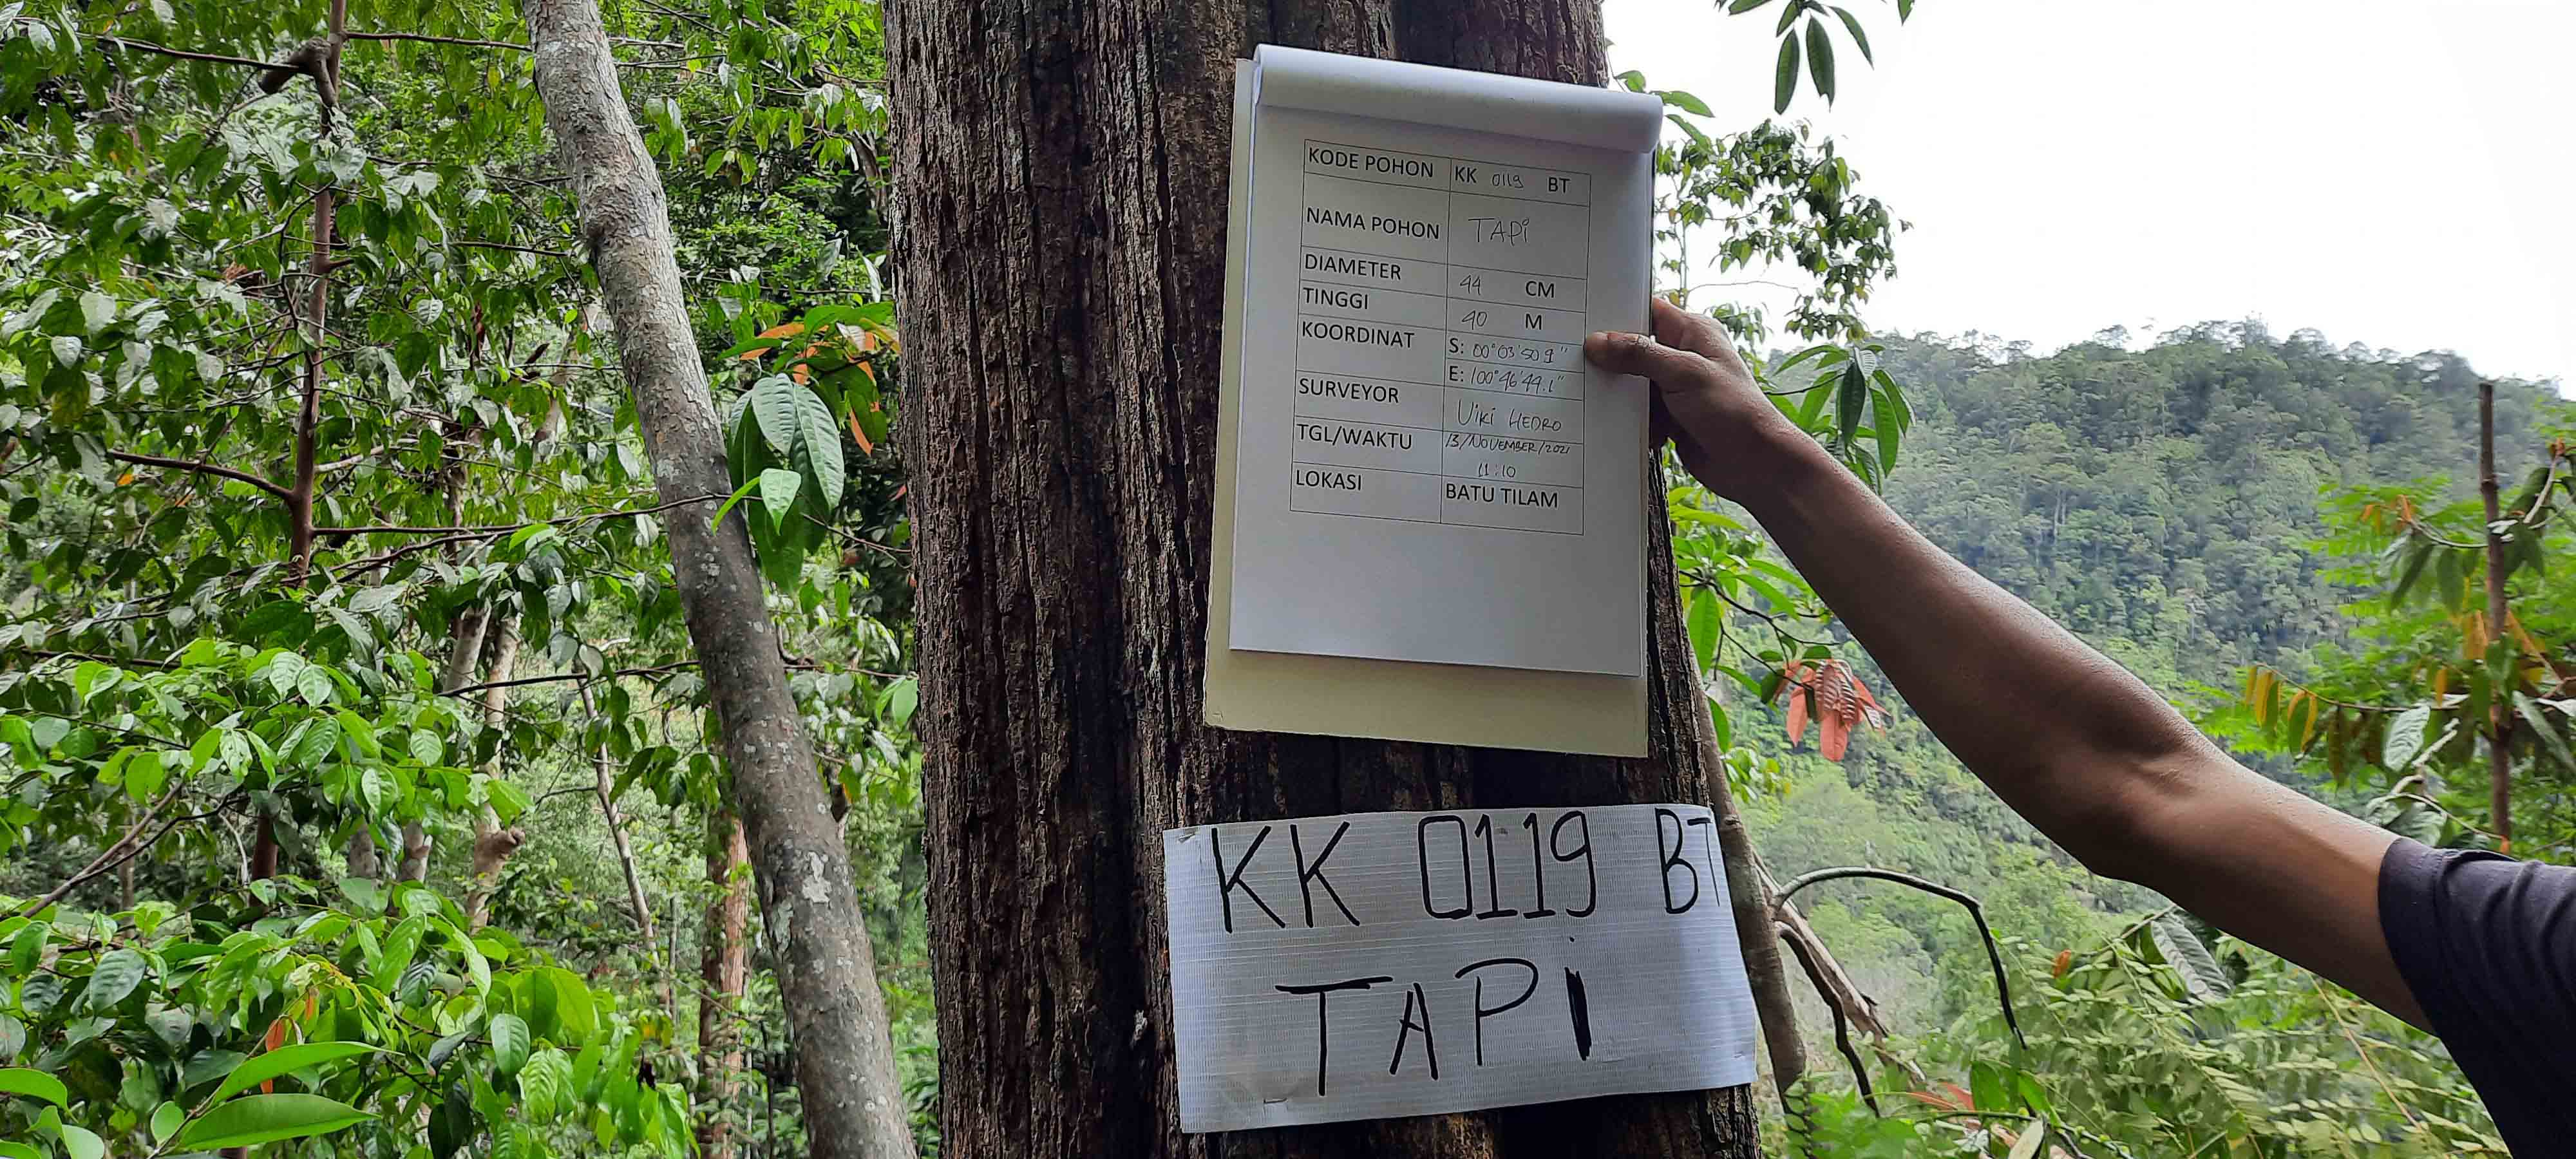 KODE POHON KK 0119 BT
NAMA POHON TAPi
DIAMETER 44 CM
TINGGI 40 M
KOORDINAT S: 00°03'50.9"
E: 100°46'44.1"
SURVEYOR UiKi HEDRO
TGL/WAKTU 13/NOVEMBER/2021
11:10
LOKASI BATU TILAM
KK 0119 BT
TAPi